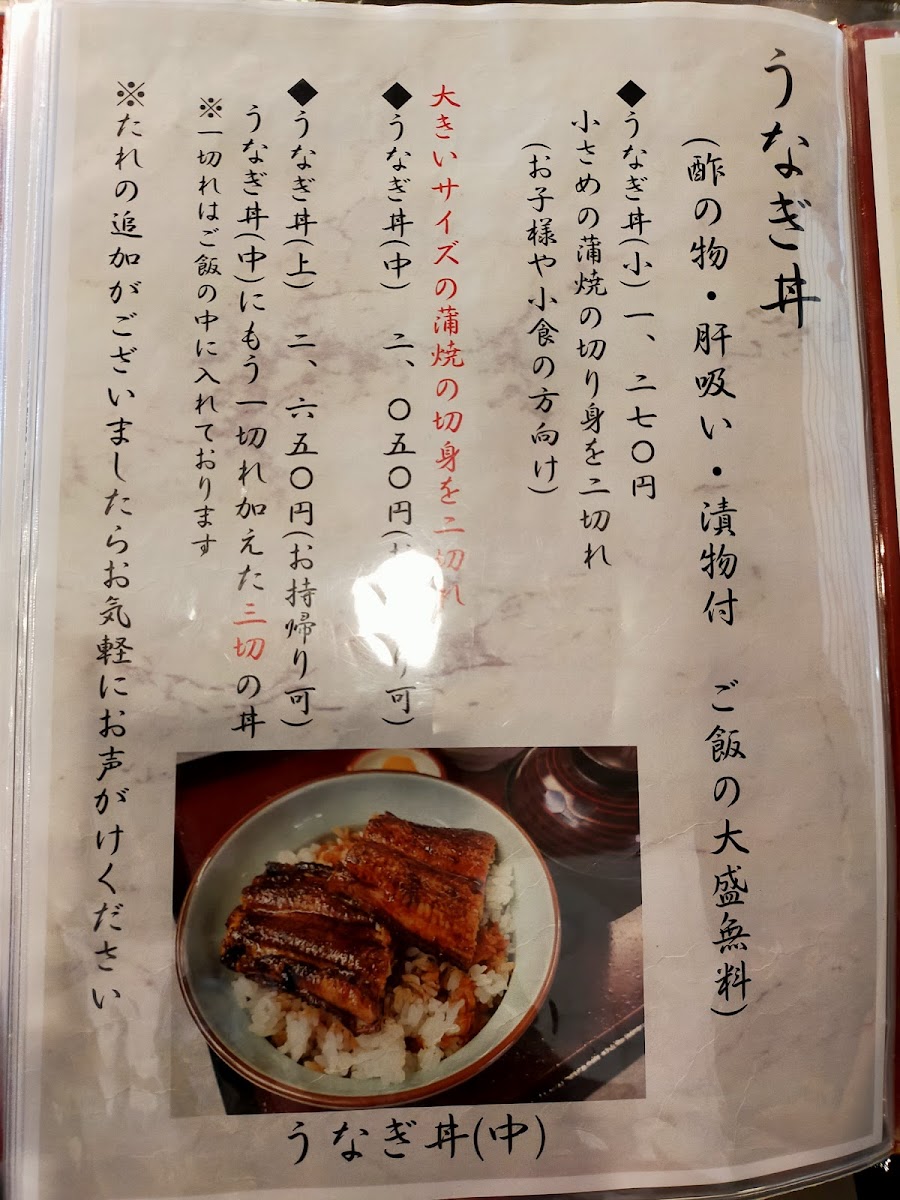 うなぎ丼
(酢の物・肝吸い・漬物付　ご飯の大盛無料)
◆うなぎ丼(小)一、二七〇円
小さめの蒲焼の切り身を二切れ
(お子様や小食の方向け)
大きいサイズの蒲焼の切身を二切れ
◆うなぎ丼(中)　二、〇五〇円(お　り可)
◆うなぎ丼(上)　二、六五〇円(お持帰り可)
うなぎ丼(中)にもう一切れ加えた三切の丼
※一切れはご飯の中に入れております
※たれの追加がございましたらお気軽にお声がけください
うなぎ丼(中)